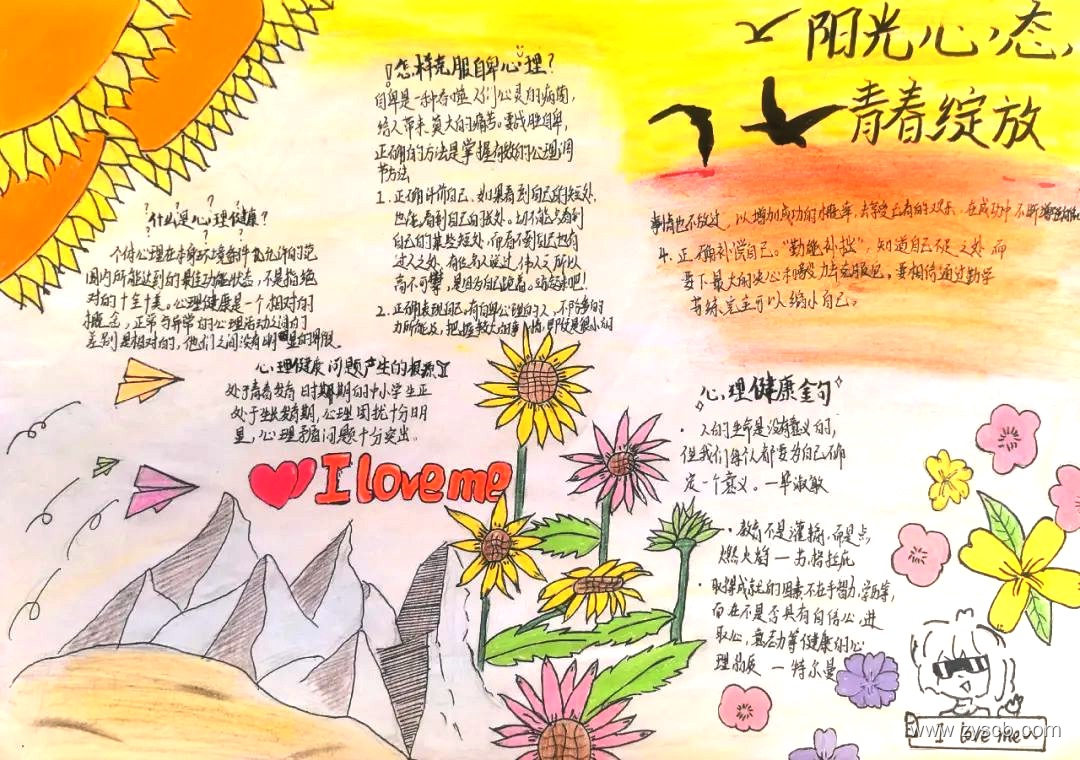 阳光心态，
青春绽放
怎样克服自卑心理？
自卑是一种吞噬人们心灵的病菌，
给人带来莫大的痛苦。要战胜自卑，
正确的方法是掌握有效的心理调
节方法
1. 正确评价自己。如果看到自己的短处，
也能看到自己的长处。切不能只看到
自己的某些短处，而看不到自己也有
过人之处。有位名人说过，伟人之所以
高不可攀，是因为自己跪着。站起来吧！
2. 正确表现自己。有自卑心理的人，不妨多的
力所能及，把握较大的事情，即使是很小的
事情也不放过，以增加成功的概率，去享受上有的欢乐，在成功中不断增强
4. 正确补偿自己。“勤能补拙”，知道自己不足之处，而
要下最大的决心和毅力去克服它。要相信通过勤学
苦练，完全可以缩小自己。
什么是心理健康？
个体心理在本身环境条件能允许的范
围内所能达到的最佳功能状态，不是指绝
对的十全十美。心理健康是一个相对的
概念，正常与异常的心理活动之间的
差别是相对的，他们之间没有明显的界限。
心理健康问题产生的根源
处于青春发育时期的中小学生正
处于生长发育期，心理困扰十分明
显，心理矛盾问题十分突出。
I love me
心理健康金句
· 人的生命是没有意义的，
但我们每个人都要为自己确
定一个意义。一毕淑敏
· 教育不是灌输，而是点
燃火焰 一苏格拉底
· 取得成就的因素不在乎智力，学历等，
而在不是否具有自信心，进
取心，意志力等健康的心
理品质 一特尔曼
I love me
www.lzyscb.com